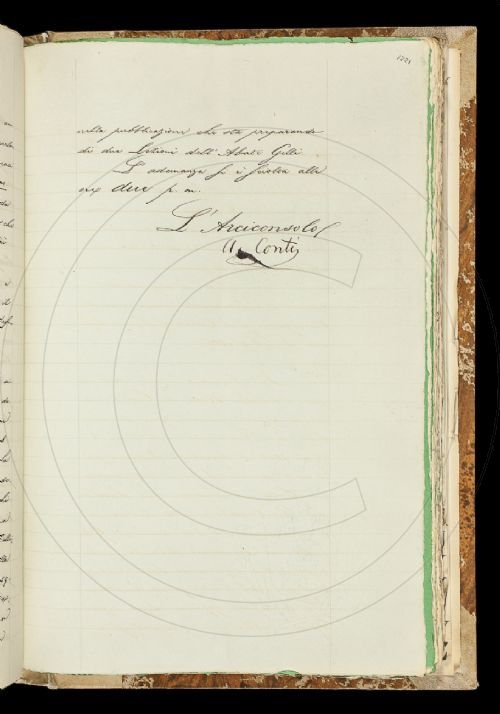 1221
nella pubblicazione che sta preparando
di due Lezioni dell'Abate Gelli
L'adunanza fu sciolta alle
ore due p. m.
L'Arciconsolo
A. Conti